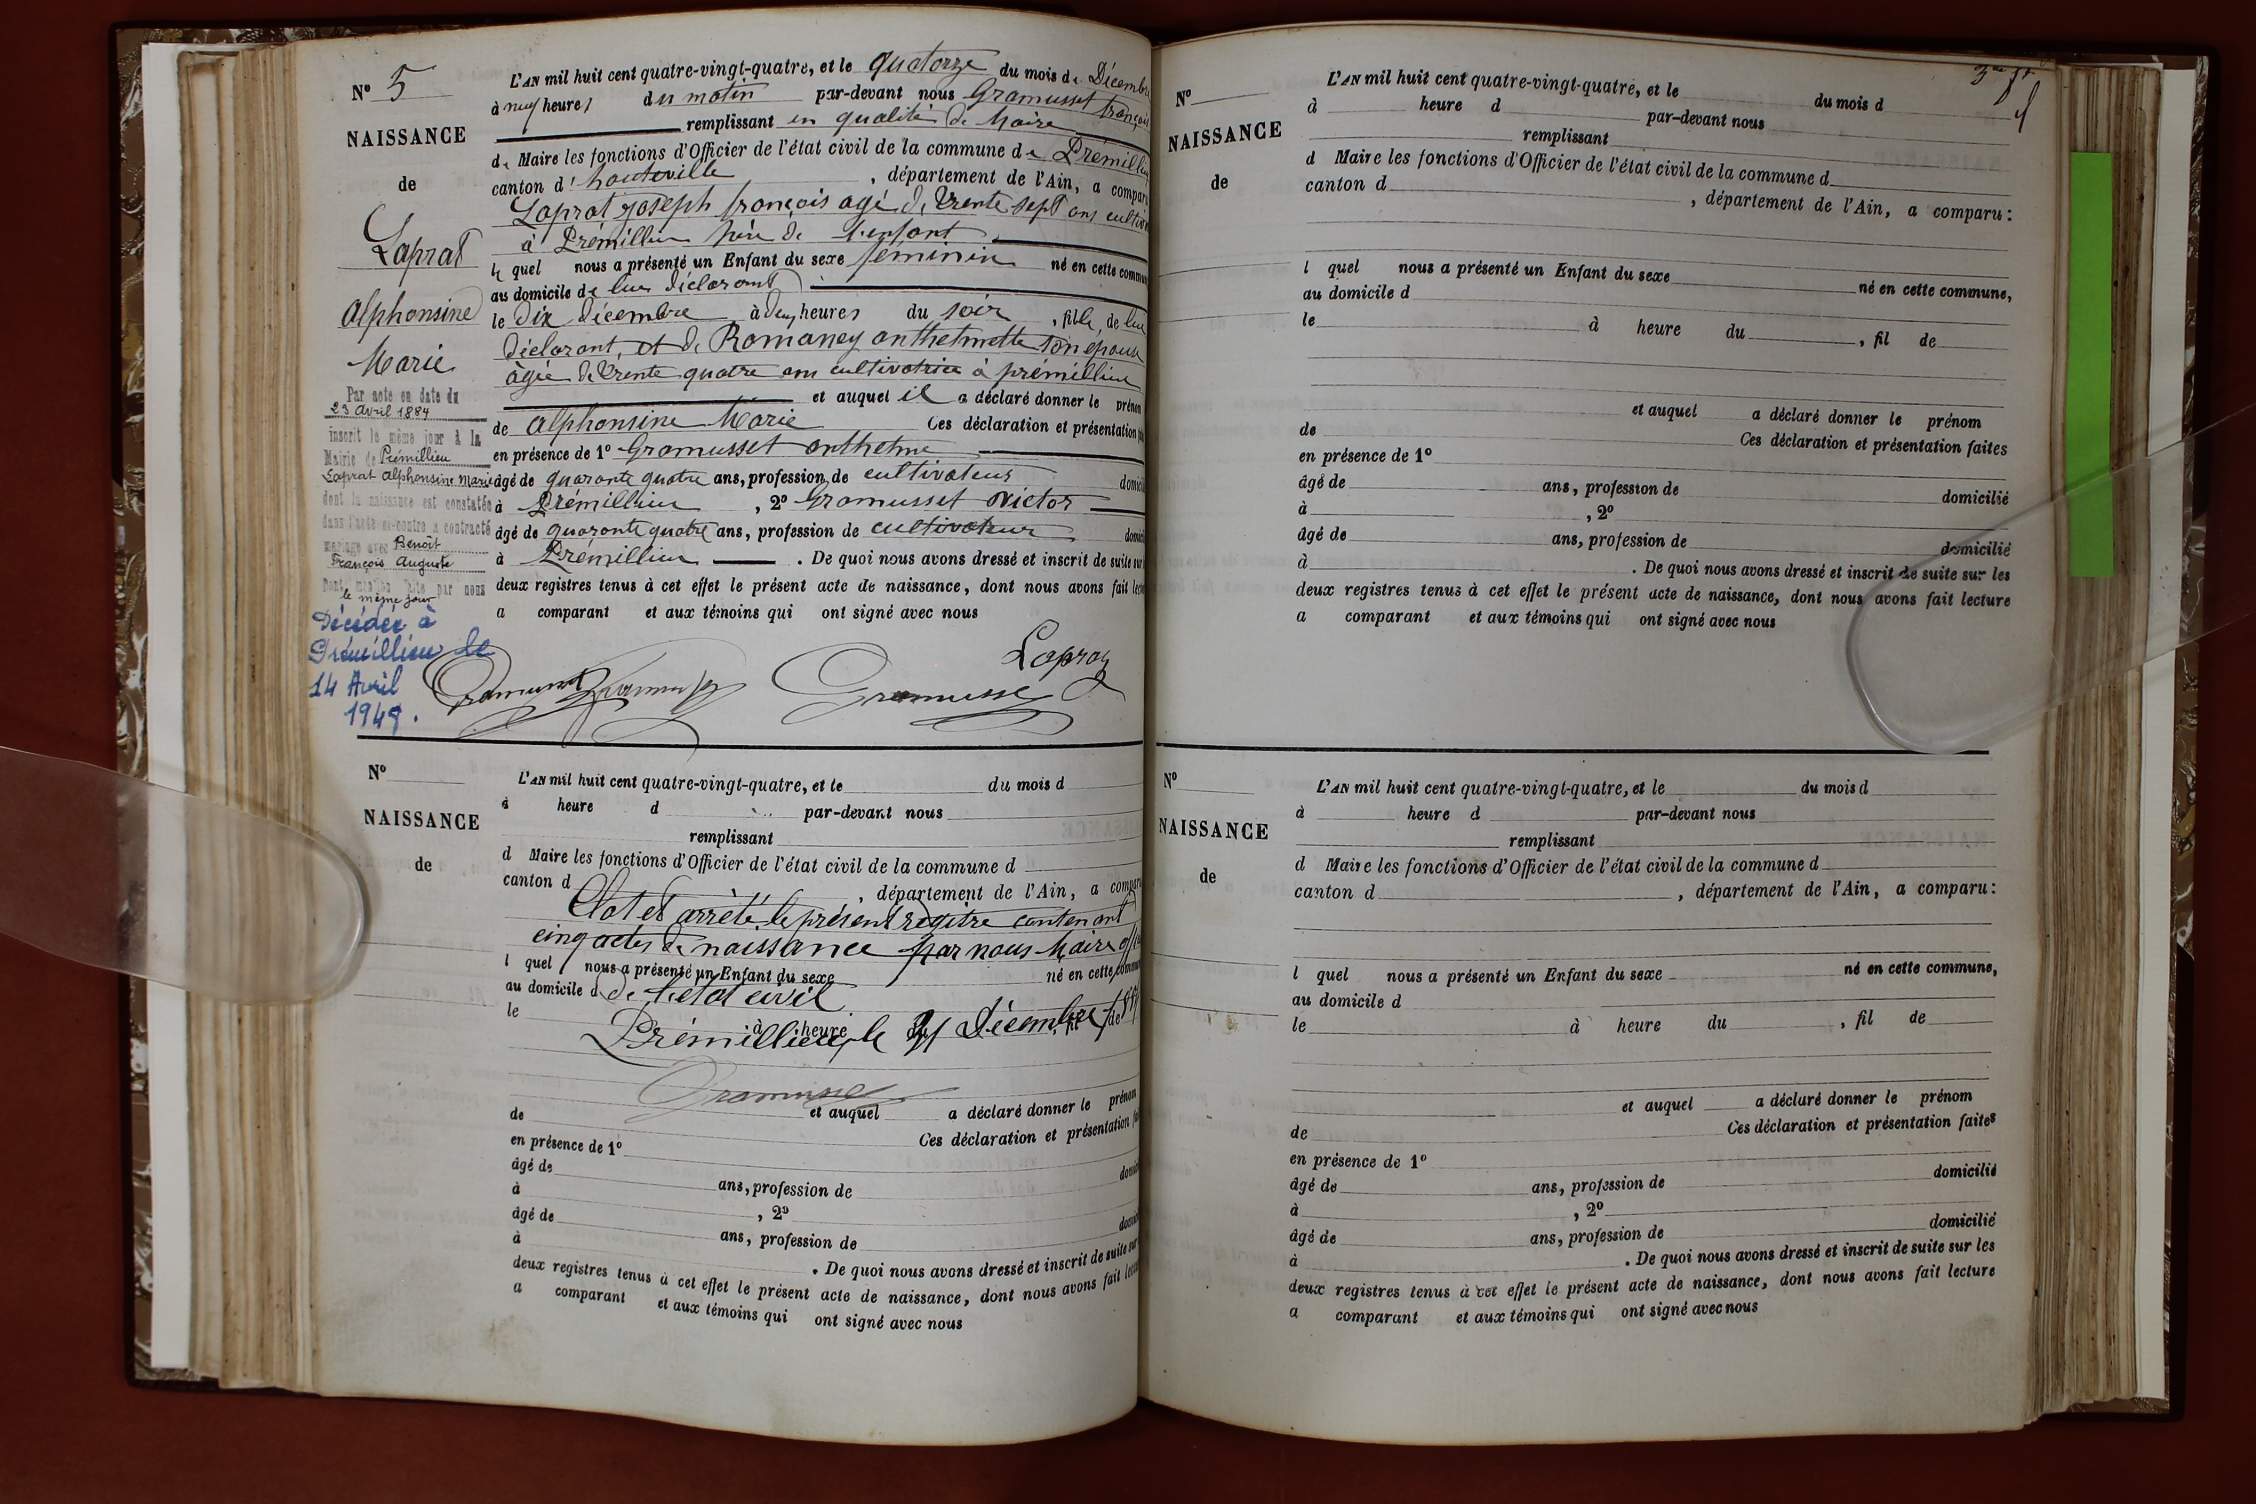 Nº 5
NAISSANCE
de
Laprat
Alphonsine
Marie
Par note en date du
23 avril 1884
inscrit le même jour à la
Mairie de Prémillieu
Laprat Alphonsine Marie
dont la naissance est constatée
dans l'acte ci-contre a contracté
mariage avec Benoît
François Auguste
par nous
le même jour
Décédée à
Prémillieu le
14 Avril
1948.
L'AN mil huit cent quatre-vingt-quatre, et le quatorze du mois de Décembre
à neuf heures du matin par-devant nous Gramusset françois
remplissant en qualité de Maire
de Maire les fonctions d'Officier de l'état civil de la commune de Prémillieu
canton d'hauteville, département de l'Ain, a comparu
Laprat joseph françois agé de trente sept ans cultivateur
à Prémillieu père de l'enfant
le quel nous a présenté un Enfant du sexe féminin né en cette commune
au domicile de lui déclarant
le dix décembre à deux heures du soir, fille de lui
déclarant, et de Romaney anthelmette son épouse
âgée de trente quatre ans cultivatrice à prémillieu
et auquel il a déclaré donner le prénom
de alphonsine Marie Ces déclaration et présentation
en présence de 1º Gramusset anthelme
âgé de quarante quatre ans, profession de cultivateur
à Prémillieu, 2º Gramusset victor
âgé de quarante quatre ans, profession de cultivateur
à Prémillieu. De quoi nous avons dressé et inscrit de suite sur
deux registres tenus à cet effet le présent acte de naissance, dont nous avons fait lecture
a comparant et aux témoins qui ont signé avec nous
Laprat
Gramusset Gramusset Gramusset
Nº
NAISSANCE
de
L'AN mil huit cent quatre-vingt-quatre, et le du mois d
à heure d par-devant nous
remplissant
d Maire les fonctions d'Officier de l'état civil de la commune d
canton d , département de l'Ain, a comparu
Clot et arrêté le présent régitre contenant
cinq actes de naissance par nous Maire
l quel nous a présenté un Enfant du sexe né en cette commune
au domicile d de l'état civil
le à heure
Prémillieu, le 31 Décembre
Gramusset
et auquel a déclaré donner le prénom
de Ces déclaration et présentation
en présence de 1º
âgé de ans, profession de
à , 2º
âgé de ans, profession de
à . De quoi nous avons dressé et inscrit de suite sur
deux registres tenus à cet effet le présent acte de naissance, dont nous avons fait lecture
a comparant et aux témoins qui ont signé avec nous
Nº
NAISSANCE
de
L'AN mil huit cent quatre-vingt-quatre, et le du mois d
à heure d par-devant nous
remplissant
d Maire les fonctions d'Officier de l'état civil de la commune d
canton d , département de l'Ain, a comparu :
l quel nous a présenté un Enfant du sexe né en cette commune,
au domicile d
le à heure du , fil de
et auquel a déclaré donner le prénom
de Ces déclaration et présentation faites
en présence de 1º
âgé de ans, profession de domicilié
à , 2º
âgé de ans, profession de domicilié
à . De quoi nous avons dressé et inscrit de suite sur les
deux registres tenus à cet effet le présent acte de naissance, dont nous avons fait lecture
a comparant et aux témoins qui ont signé avec nous
Nº
NAISSANCE
de
L'AN mil huit cent quatre-vingt-quatre, et le du mois d
à heure d par-devant nous
remplissant
d Maire les fonctions d'Officier de l'état civil de la commune d
canton d , département de l'Ain, a comparu :
l quel nous a présenté un Enfant du sexe né en cette commune,
au domicile d
le à heure du , fil de
et auquel a déclaré donner le prénom
de Ces déclaration et présentation faites
en présence de 1º
âgé de ans, profession de domicilié
à , 2º
âgé de ans, profession de domicilié
à . De quoi nous avons dressé et inscrit de suite sur les
deux registres tenus à cet effet le présent acte de naissance, dont nous avons fait lecture
a comparant et aux témoins qui ont signé avec nous